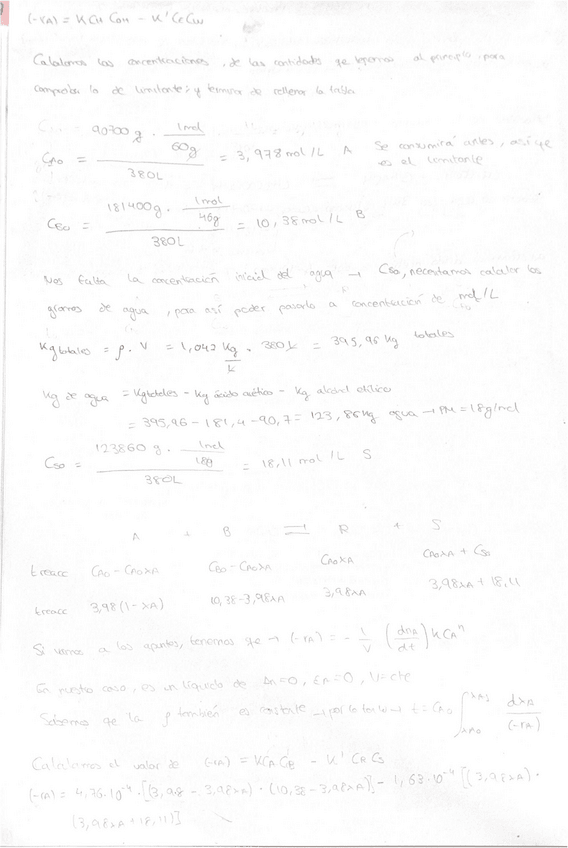 (-rA) = K CH COH - K' CE CW
Calculamos las concentraciones, de las cantidades que tenemos al principio, para
comprobar lo de limitante; y terminar de rellenar la tabla
CAO = (90700 g · 1mol/60g) / 380L = 3,978 mol/L A Se consumirá antes, así que es el limitante
CBO = (181400g · 1mol/46g) / 380L = 10,38 mol/L B
Nos falta la concentración inicial del agua → CSO, necesitamos calcular los
gramos de agua, para así poder pasarlo a concentración de mol/L
Kg totales = ρ · V = 1,042 Kg/L · 380 L = 395,96 Kg totales
Kg de agua = Kg totales - Kg ácido acético - Kg alcohol etílico
= 395,96 - 181,4 - 90,7 = 123,86 Kg agua → PM = 18 g/mol
CSO = (123860 g · 1mol/18g) / 380L = 18,11 mol/L S
A + B ⇌ R + S
t reacc CAO - CAO XA CBO - CAO XA CAO XA CAO XA + CSO
t reacc 3,98 (1 - XA) 10,38 - 3,98XA 3,98XA 3,98XA + 18,11
Si vamos a los apuntes, tenemos que → (-rA) = - 1/V (dnA/dt) K CA^n
En nuestro caso, es un líquido de Δn = 0, εA = 0, V = cte
Sabemos que la ρ también es constante → por lo tanto → t = CAO ∫ XAO XAf dXA/(-rA)
Calculamos el valor de (-rA) = K CA CB - K' CR CS
(-rA) = 4,76·10^-4 · [(3,98 - 3,98XA) · (10,38 - 3,98XA)] - 1,63·10^-4 [(3,98XA) ·
(3,98XA + 18,11)]